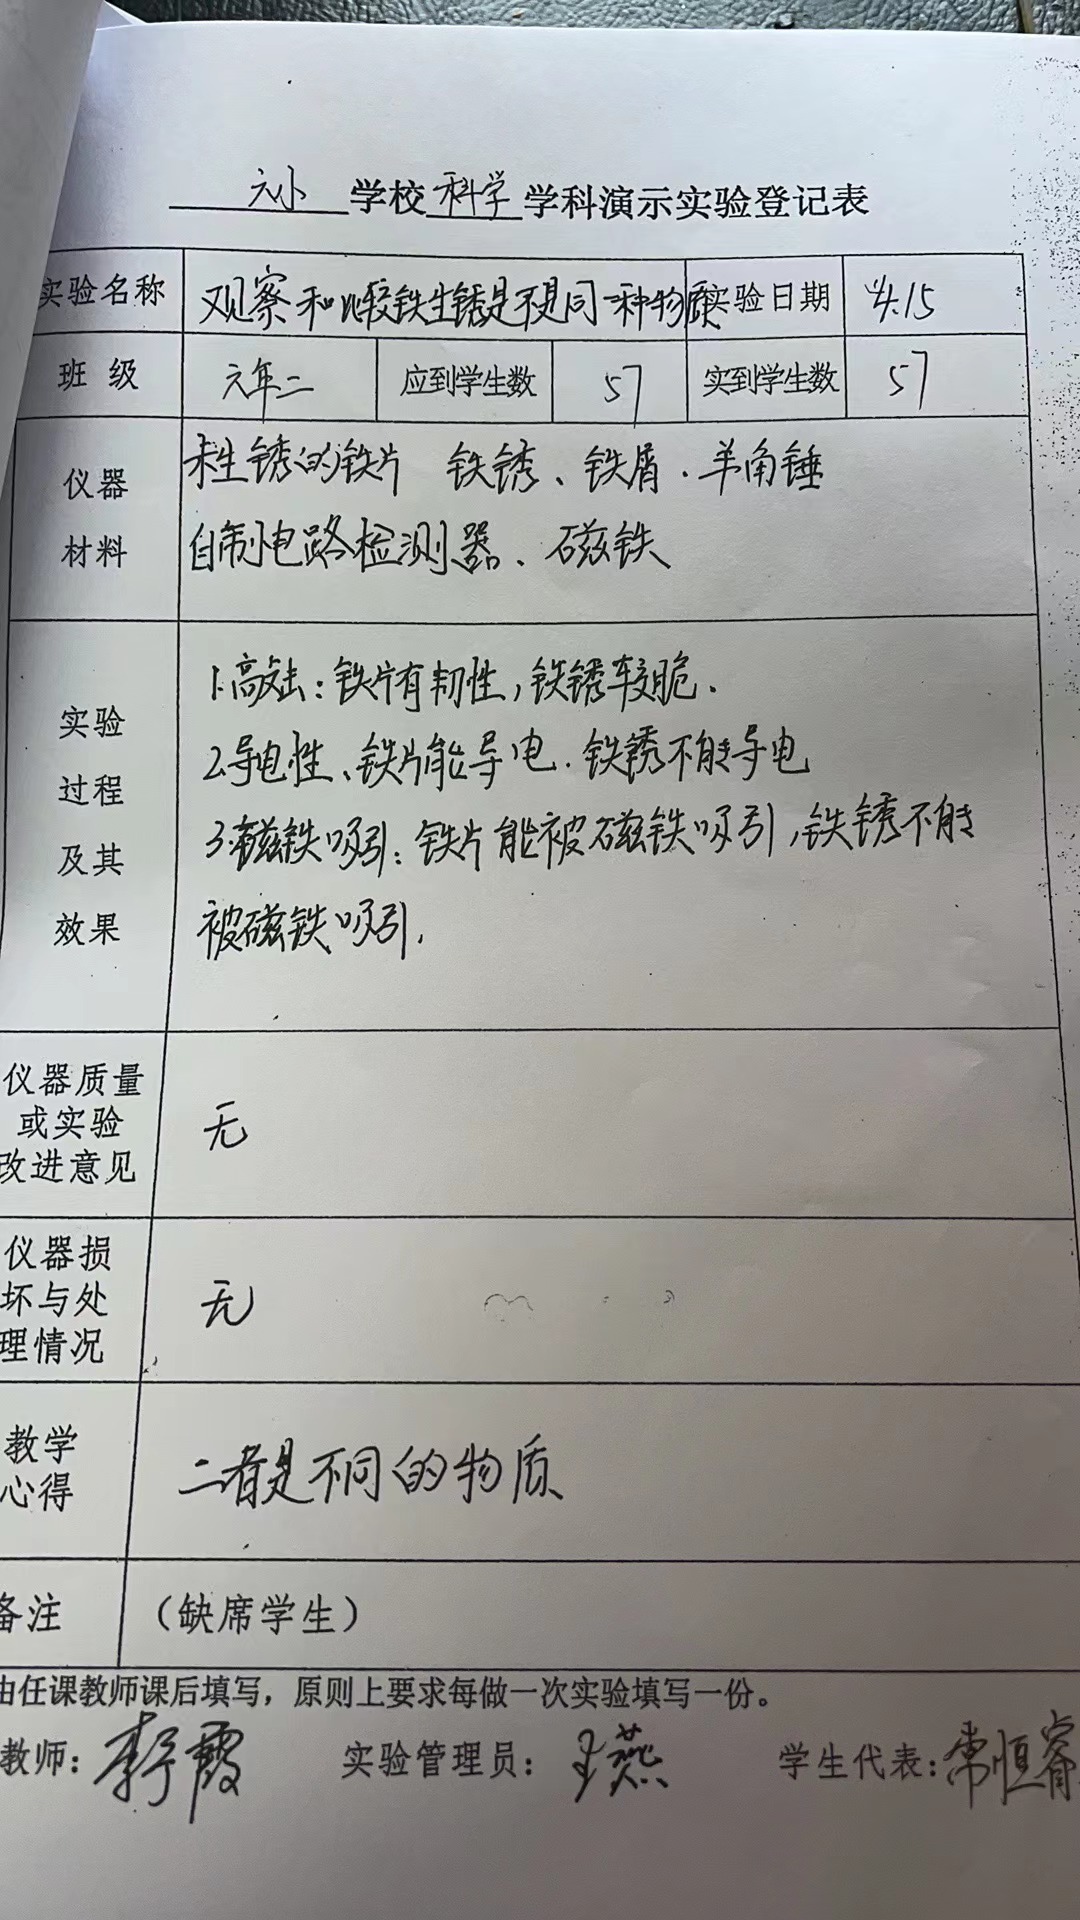 六小 学校 科学 学科演示实验登记表
实验名称 观察和比较铁生锈是不是同一种物质 实验日期 4.15
班级 六年二 应到学生数 57 实到学生数 57
仪器
材料
未生锈的铁片 铁锈、铁屑.羊角锤
自制电路检测器、磁铁
实验
过程
及其
效果
1.敲击:铁片有韧性,铁锈较脆.
2.导电性、铁片能导电.铁锈不能导电
3.磁铁吸引:铁片能被磁铁吸引,铁锈不能
被磁铁吸引.
仪器质量
或实验
改进意见
无
仪器损
坏与处
理情况
无
教学
心得
二者是不同的物质
备注 (缺席学生)
由任课教师课后填写，原则上要求每做一次实验填写一份。
教师: 李霞 实验管理员: 王燕 学生代表: 常恒睿